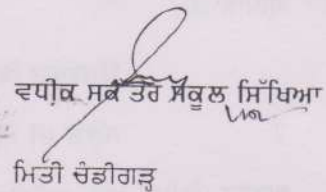 ਵਧੀਕ ਸਕੱਤਰ ਸਕੂਲ ਸਿੱਖਿਆ
ਮਿਤੀ ਚੰਡੀਗੜ੍ਹ